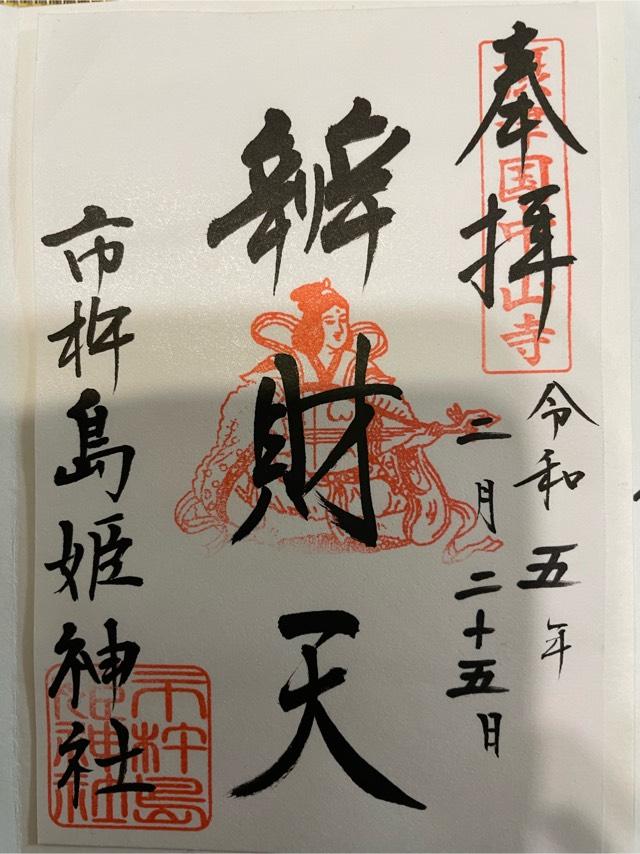 奉拝
摂津国中山寺
令和五年
二月二十五日
辨財天
市杵島姫神社
市杵島姫神社